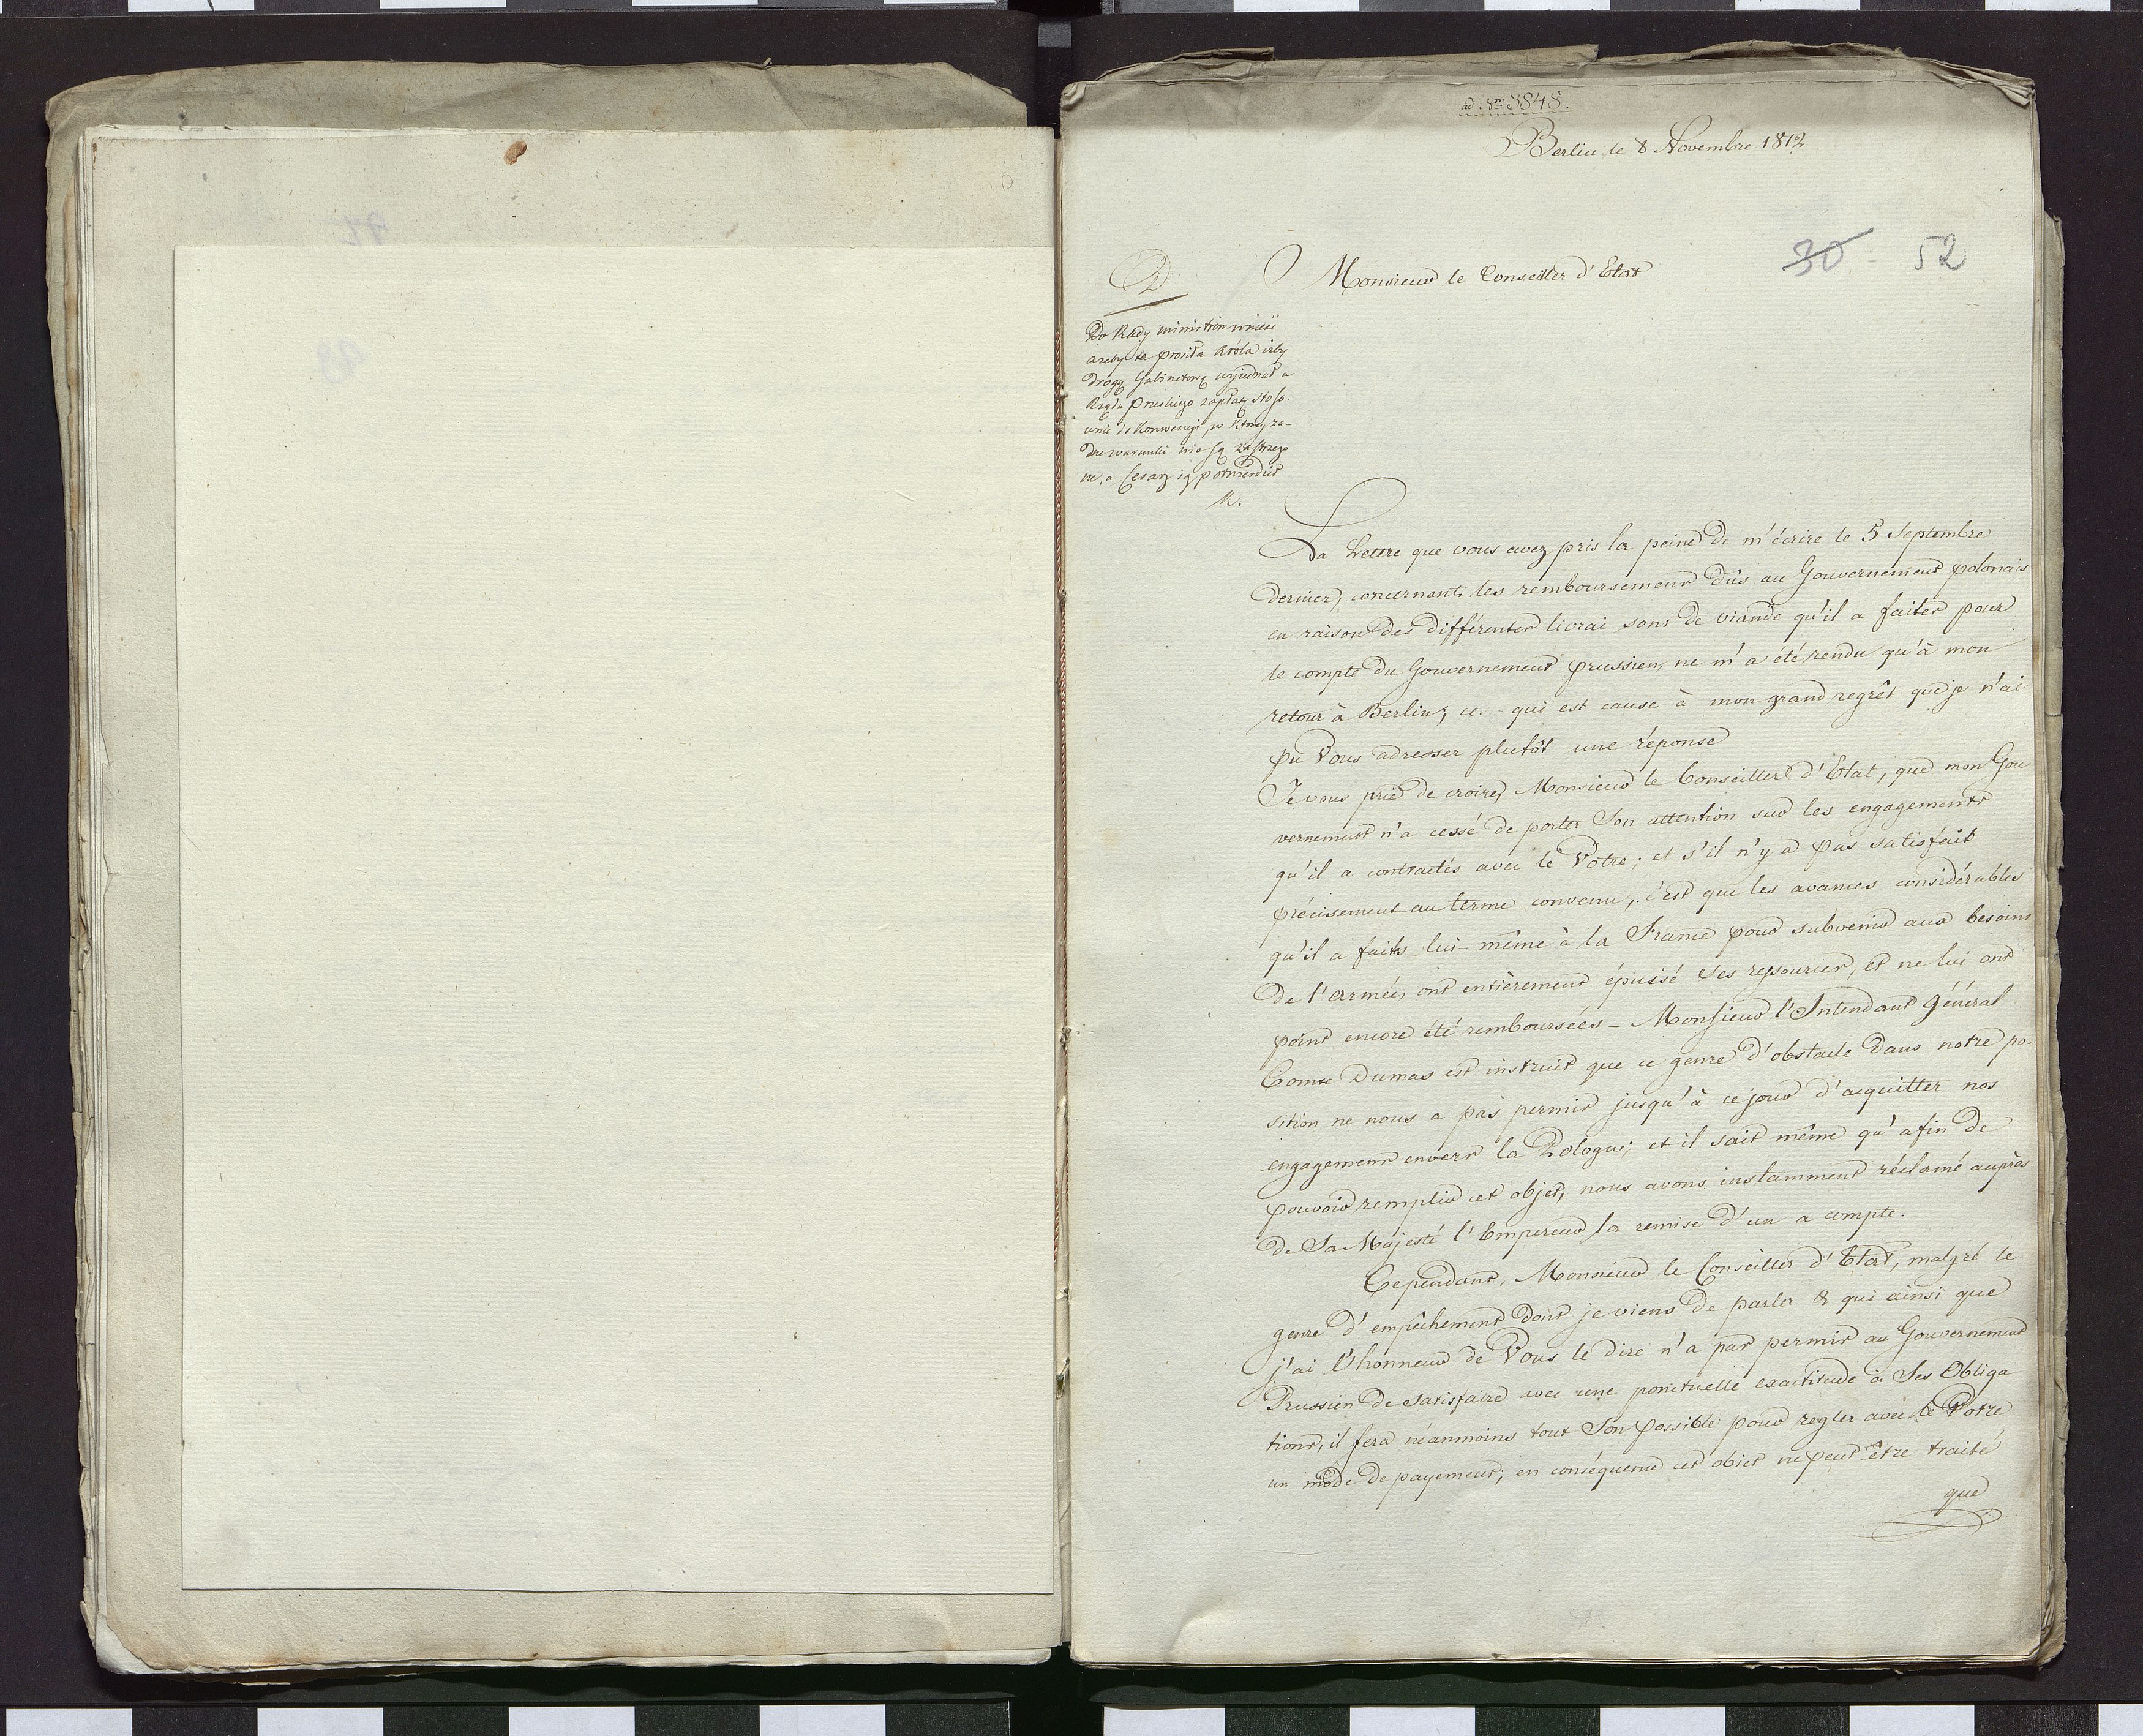 ad Nm 3848.
Berlin le 8 Novembre 1812
30 - 52
Monsieur le Conseiller d'Etat
D
Do Rady ministrow wnieść
ażeby ta prosiła Króla iżby
drogą Gabinetową wyjednał u
Rządu Pruskiego zapłatę stoso-
wnie do Konwencyi, w ktorey ża-
dne warunki nie są zastrzeżo
ne, a Cesarz ią potwierdził
M.
La Lettre que vous avez pris la peine de m'écrire le 5 Septembre
dernier, concernant les remboursements dûs au Gouvernement polonais
en raison des différentes livraisons de viande qu'il a faites pour
le compte du Gouvernement prussien, ne m'a été rendu qu'à mon
retour à Berlin; ce qui est cause à mon grand regrêt que je n'ai
pu Vous adresser plutôt une réponse
Je vous prie de croire, Monsieur le Conseiller d'Etat, que mon Gou
vernement n'a cessé de porter Son attention sur les engagements
qu'il a contractés avec le Votre; et s'il n'y a pas satisfait
précisement au terme convenu, c'est que les avances considérables
qu'il a faits lui-même à la France pour subvenir aux besoins
de l'armée, ont entièrement épuisé ses ressources, et ne lui ont
point encore été remboursées - Monsieur l'Intendant général
Comte Dumas est instruit que ce genre d'obstacle dans notre po-
sition ne nous a pas permis jusqu'à ce jour d'acquitter nos
engagements envers la Pologne; et il sait même qu'afin de
pouvoir remplir cet objet, nous avons instamment réclamé auprès
de Sa Majesté l'Empereur la remise d'un a compte.
Cependant, Monsieur le Conseiller d'Etat, malgré le
genre d'empêchement dont je viens de parler & qui ainsi que
j'ai l'honneur de Vous le dire n'a pas permis au Gouvernement
Prussien de satisfaire avec une ponctuelle exactitude à Ses Obliga
tions, il fera néanmoins tout Son possible pour regler avec le Votre
un mode de payement; en conséquence cet objet ne peut être traité
que